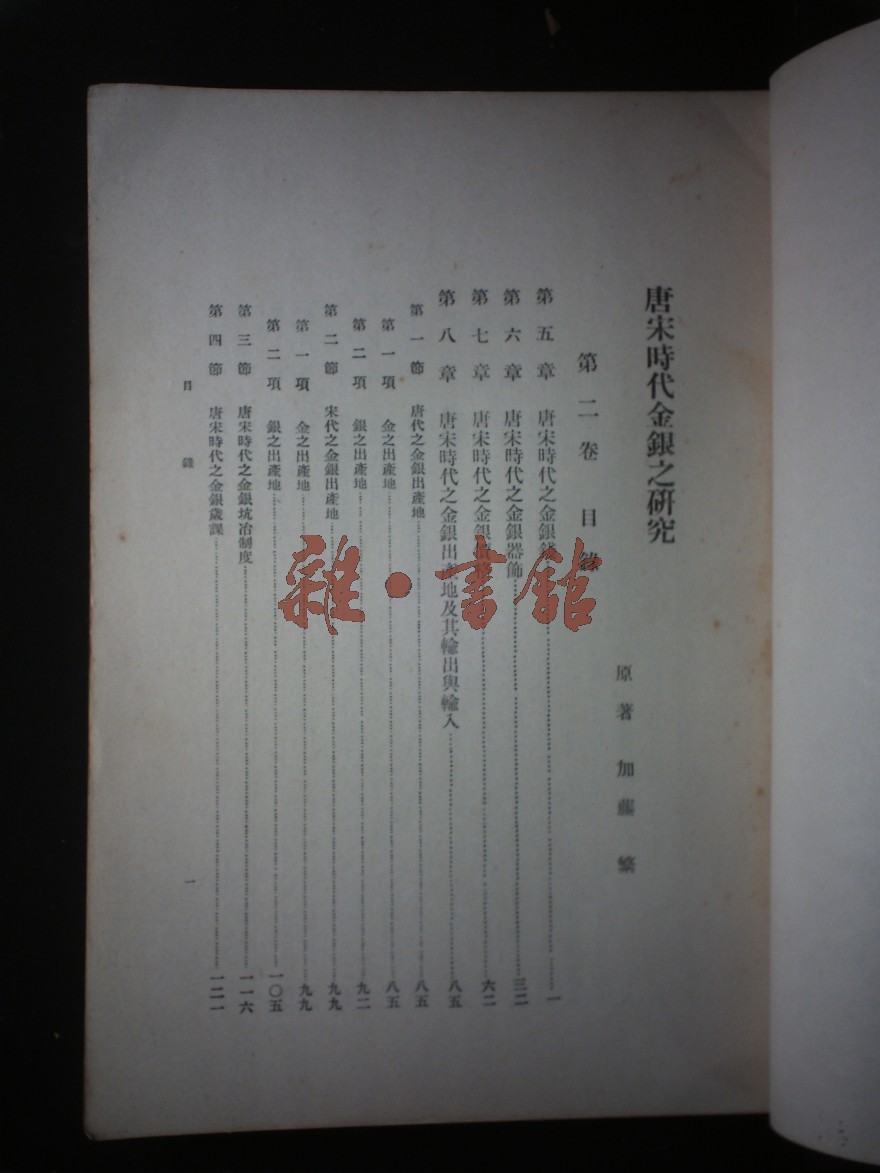 唐宋時代金銀之研究
第二卷 目錄
原著 加藤繁
第五章 唐宋時代之金銀……一
第六章 唐宋時代之金銀器飾……三二
第七章 唐宋時代之金銀……六二
第八章 唐宋時代之金銀出產地及其輸出與輸入……八五
第一節 唐代之金銀出產地……八五
第一項 金之出產地……八五
第二項 銀之出產地……九二
第二節 宋代之金銀出產地……九九
第一項 金之出產地……九九
第二項 銀之出產地……一〇五
第三節 唐宋時代之金銀坑冶制度……一一六
第四節 唐宋時代之金銀歲課……一二一
目錄
一
雜·書館